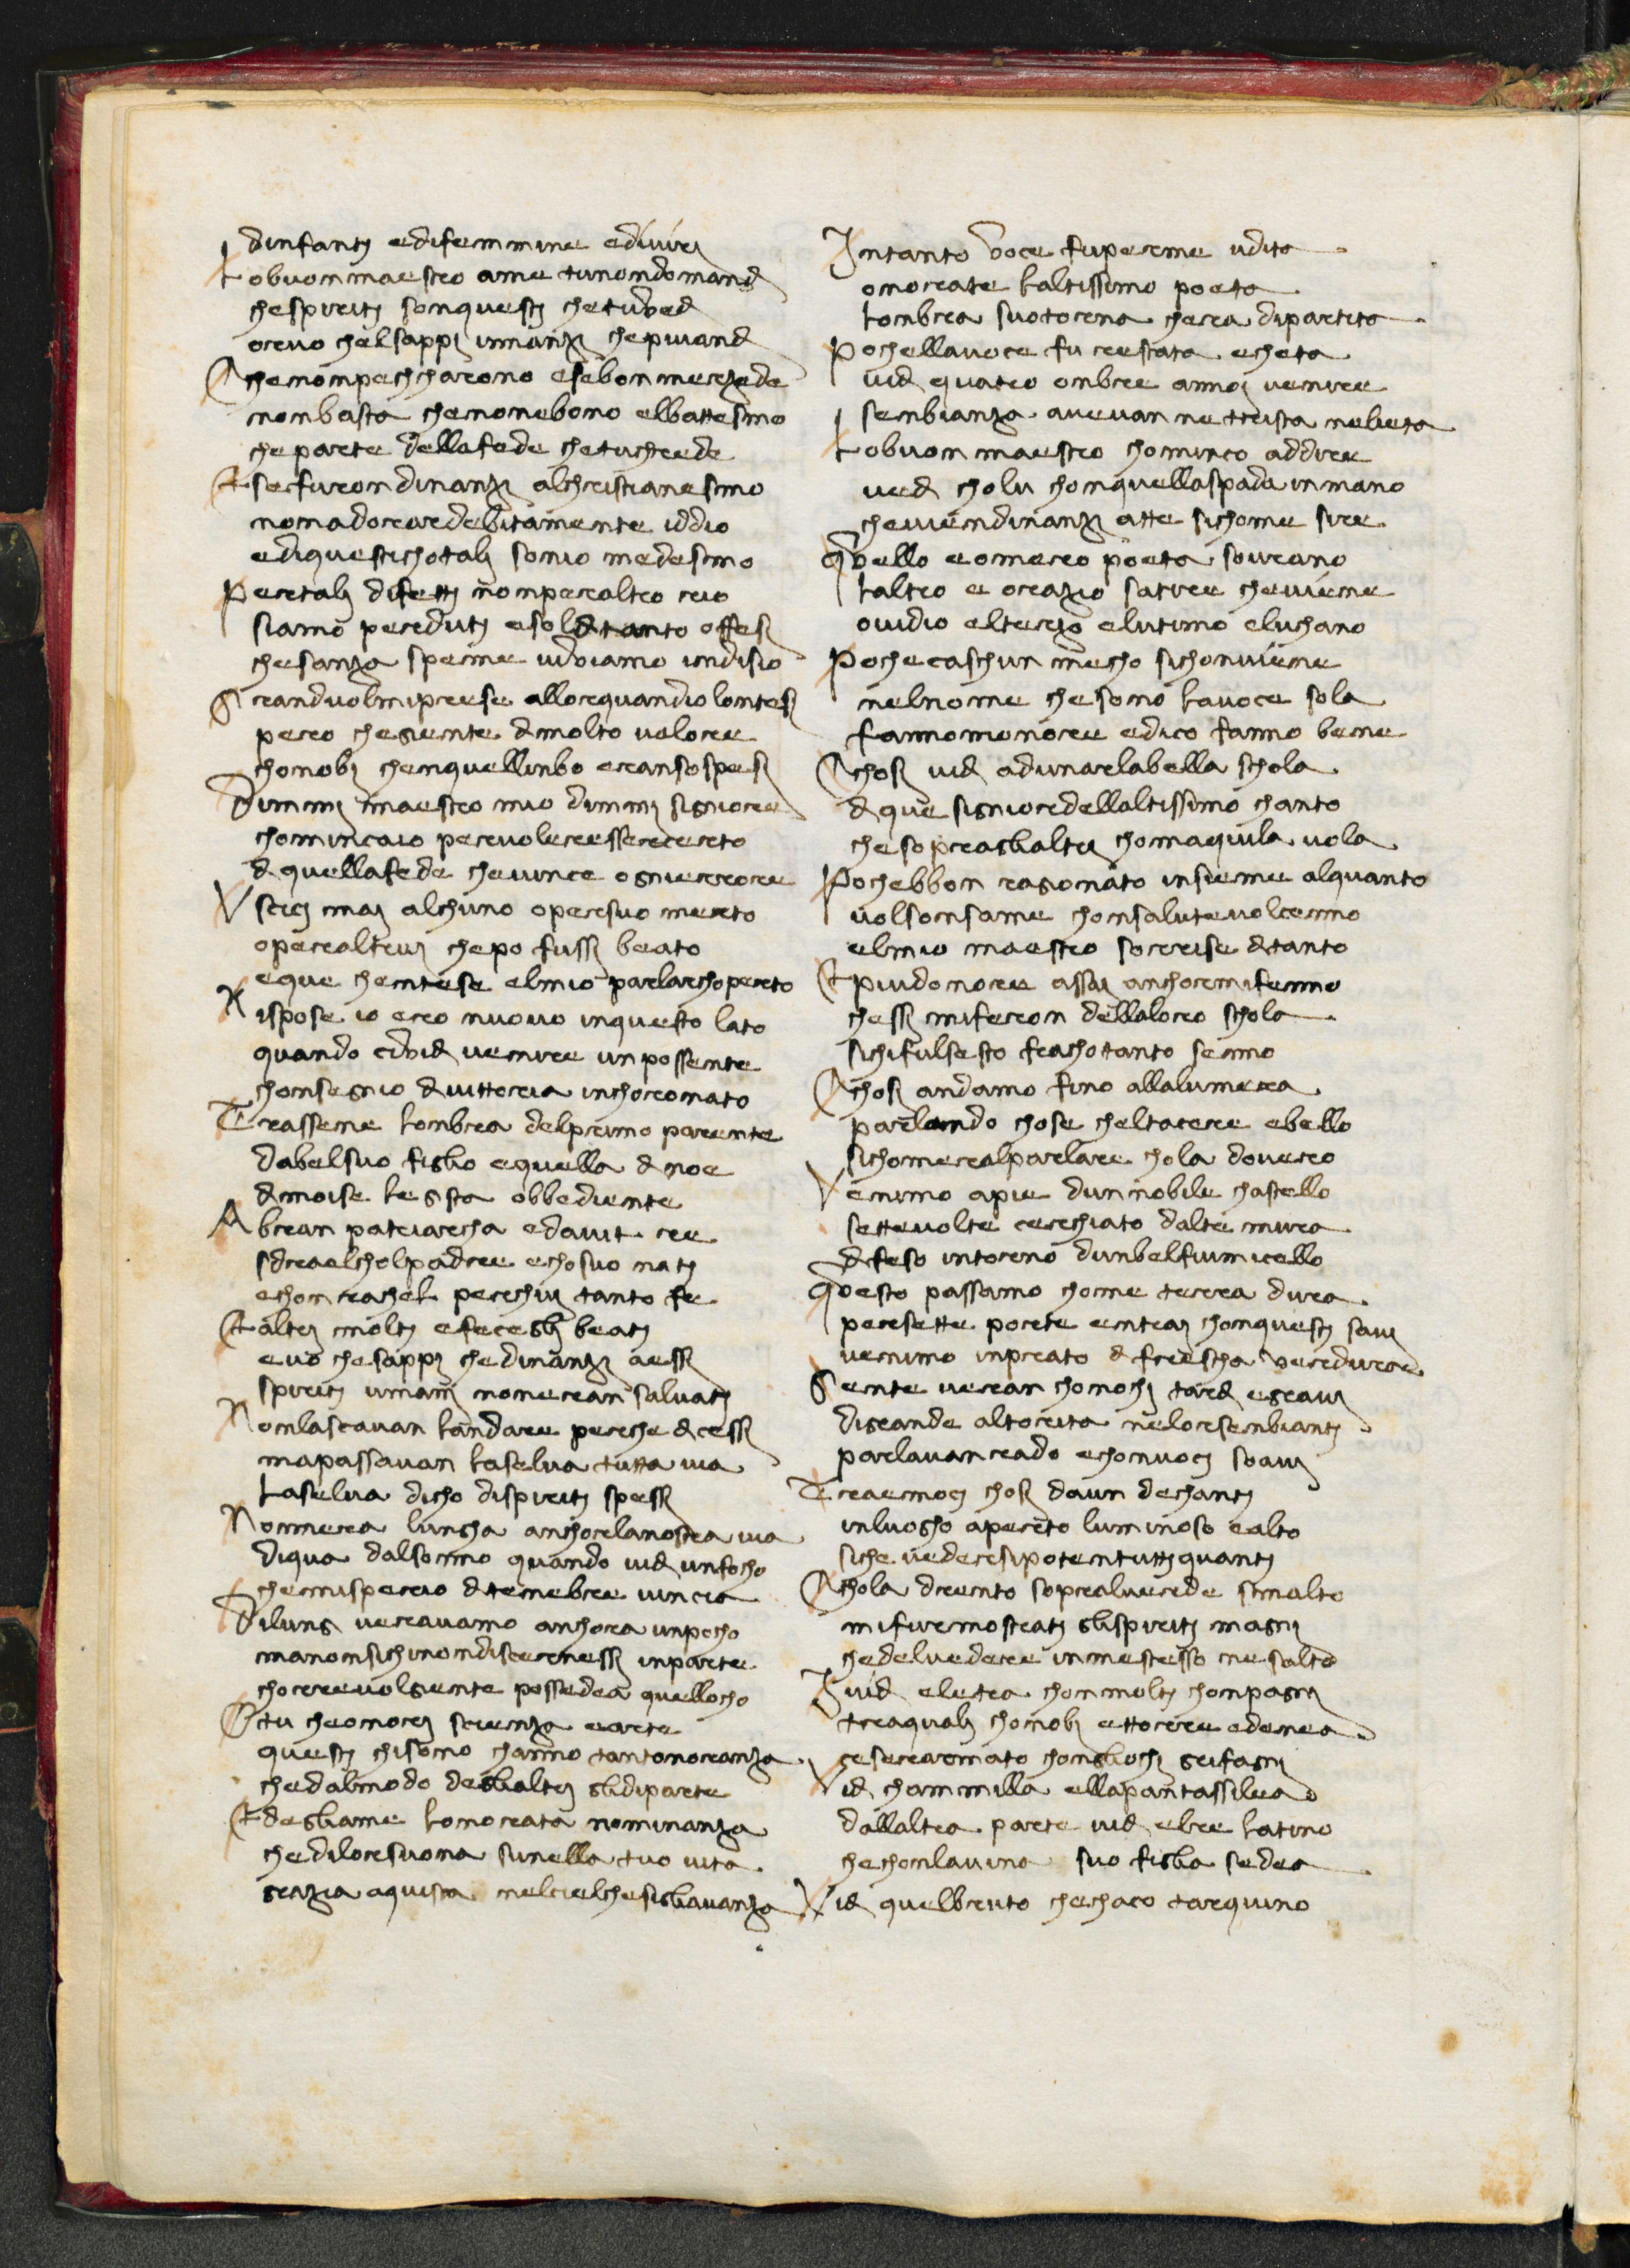 dinfanti edifemmine ediviri
Lobuonmaestro ame tunondomandi
chespiriti sonquesti chetuvedi
orvuo chelsappi innanzi chepiuandi
Chenompechcharono esebonmerzede
nonbasta chenonebono elbattesmo
che parte dellafede chetuchrede
Esefurondinanzi alchristianesmo
nomadorardebitamente iddio
ediquestichotali sonio medesmo
Pertali difetti nonperaltro rio
siamo perduti esolditanto offesi
chesanza speme viviamo indisio
Granduolmiprese allorquandiolontesi
pero chegiente dimolto valore
chonobi chenquellinbo eransospesi
Dimmi maestro mio dimmi signiore
chominciaio pervolereesserecerto
di quellafede chevince ognierrore
Uscici mai alchuno opersuo merto
operaltrui chepo fussi beato
eque chentese elmio parlarchoperto
Rispose io ero nuovo inquesto lato
quando cividi venire un possente
chonsegnio divittoria inchoronato
Trassene lombra delprimo parente
dabelsuo figlio equella di noe
dimoise leggista obbediente
Abraan patriarcha edavit re
isdraelcholpadre echosuo nati
echon rachel perchui tanto fe
Ealtri molti efecegli beati
evo chesappi chedinanzi aessi
spiriti umani nonerean salvati
Nonlasciavan landare perche dicessi
mapassavan laselva tutta via
Laselva dicho dispiriti spessi
Nonnera lungha anchorlanostra via
diqua dalsonno quando vidi unfocho
chemisperio ditenebre vincia
Dilungi veravamo anchora unpocho
manonsichinondiscernessi inparte
chorrevolgiente possedea quellocho
Otu cheonori scienza earte
questi chisono channo tantonoranza
chedalmodo deglialtri glidiparte
Edegliame lonorata nominanza
chedilorsuona sunella tuo vita
grazia aquista nelcielchesigliavanza
Intanto voce fuperme udita
onorate laltissimo poeta
lombra suotorna chera dipartita
Pochellavoce fu restata echeta
vidi quatro ombre annoi venire
senbianza avevan ne trista nelieta
Lobuon maestro chomincio addire
vedi cholui chonquellaspada inmano
cheviendinanzi atte sichome sire
Quello eomero poeta sovrano
laltro e orazio satire cheviene
ovidio elterzo elutimo eluchano
Pochecaschun mecho sichonviene
nelnome chesono lavoce sola
fannomonore edico fanno bene
Chosi vidi adunarlabella schola
di que signiordellaltissimo chanto
chesopraglialtri chomaquila vola
Pochebbon ragionato insieme alquanto
volsonsame chonsalutevolcenno
elmio maestro sorrise ditanto
Epiudonore assai anchormifenno
chessi miferon dellaloro schola
sichifulsesto frachotanto senno
Chosi andamo fino allalumera
parlando chose cheltacere ebello
sichomeralparlare chola dovero
Venimo apie dunnobile chastello
settevolte cerchiato dalte mura
difeso intorno dunbelfiumicello
Questo passamo chome terra dura
persette porte entrai chonquesti savi
venimo inprato di frescha verdura
Gente veran chonochi tardi egravi
digrande altorita nelorsenbianti
parlavanrado echonvoci soavi
Traemoci chosi daun dechanti
inluogho aperto luminoso ealto
siche vedersipotentuttiquanti
Chola dritto sopralverde smalto
mifurmostrati glispiriti magni
chedelvedere inmestesso nesalto
Ividi eletra chonmolti chonpagni
traquali chonobi ettorre edenea
cesararmato chongliochi grifagni
Vidi chammilla ellapantassilea
dallaltra parte vidi elre latino
chechonlavina suo figlia sedea
Vidi quelbruto chechaco tarquino